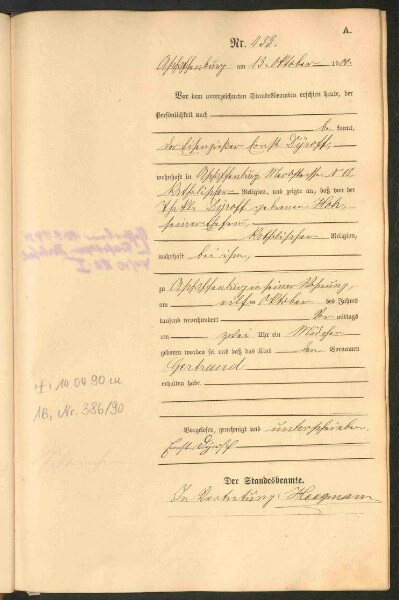 A.
Nr. 433.
Aschaffenburg am 13. Oktober
Vor dem unterzeichneten Standesbeamten erschien heute, der
Persönlichkeit nach
be kannt,
der Eisengießer Ernst Dyroff,
wohnhaft in Aschaffenburg
katholischer Religion, und zeigte an, daß von der
Dyroff geborenen
seiner Ehefrau,
katholischer Religion,
wohnhaft bei ihm,
zu Aschaffenburg in seiner Wohnung,
am elften Oktober des Jahres
tausend neunhundert Vor mittags
um zwei Uhr ein Mädchen
geboren worden sei und daß das Kind den Vornamen
Gertraud
erhalten habe.
†: 14.04.90 in
AB, Nr. 386/90
Vorgelesen, genehmigt und unterschrieben
Ernst Dyroff
Der Standesbeamte.
In Vertretung: Hoegmann